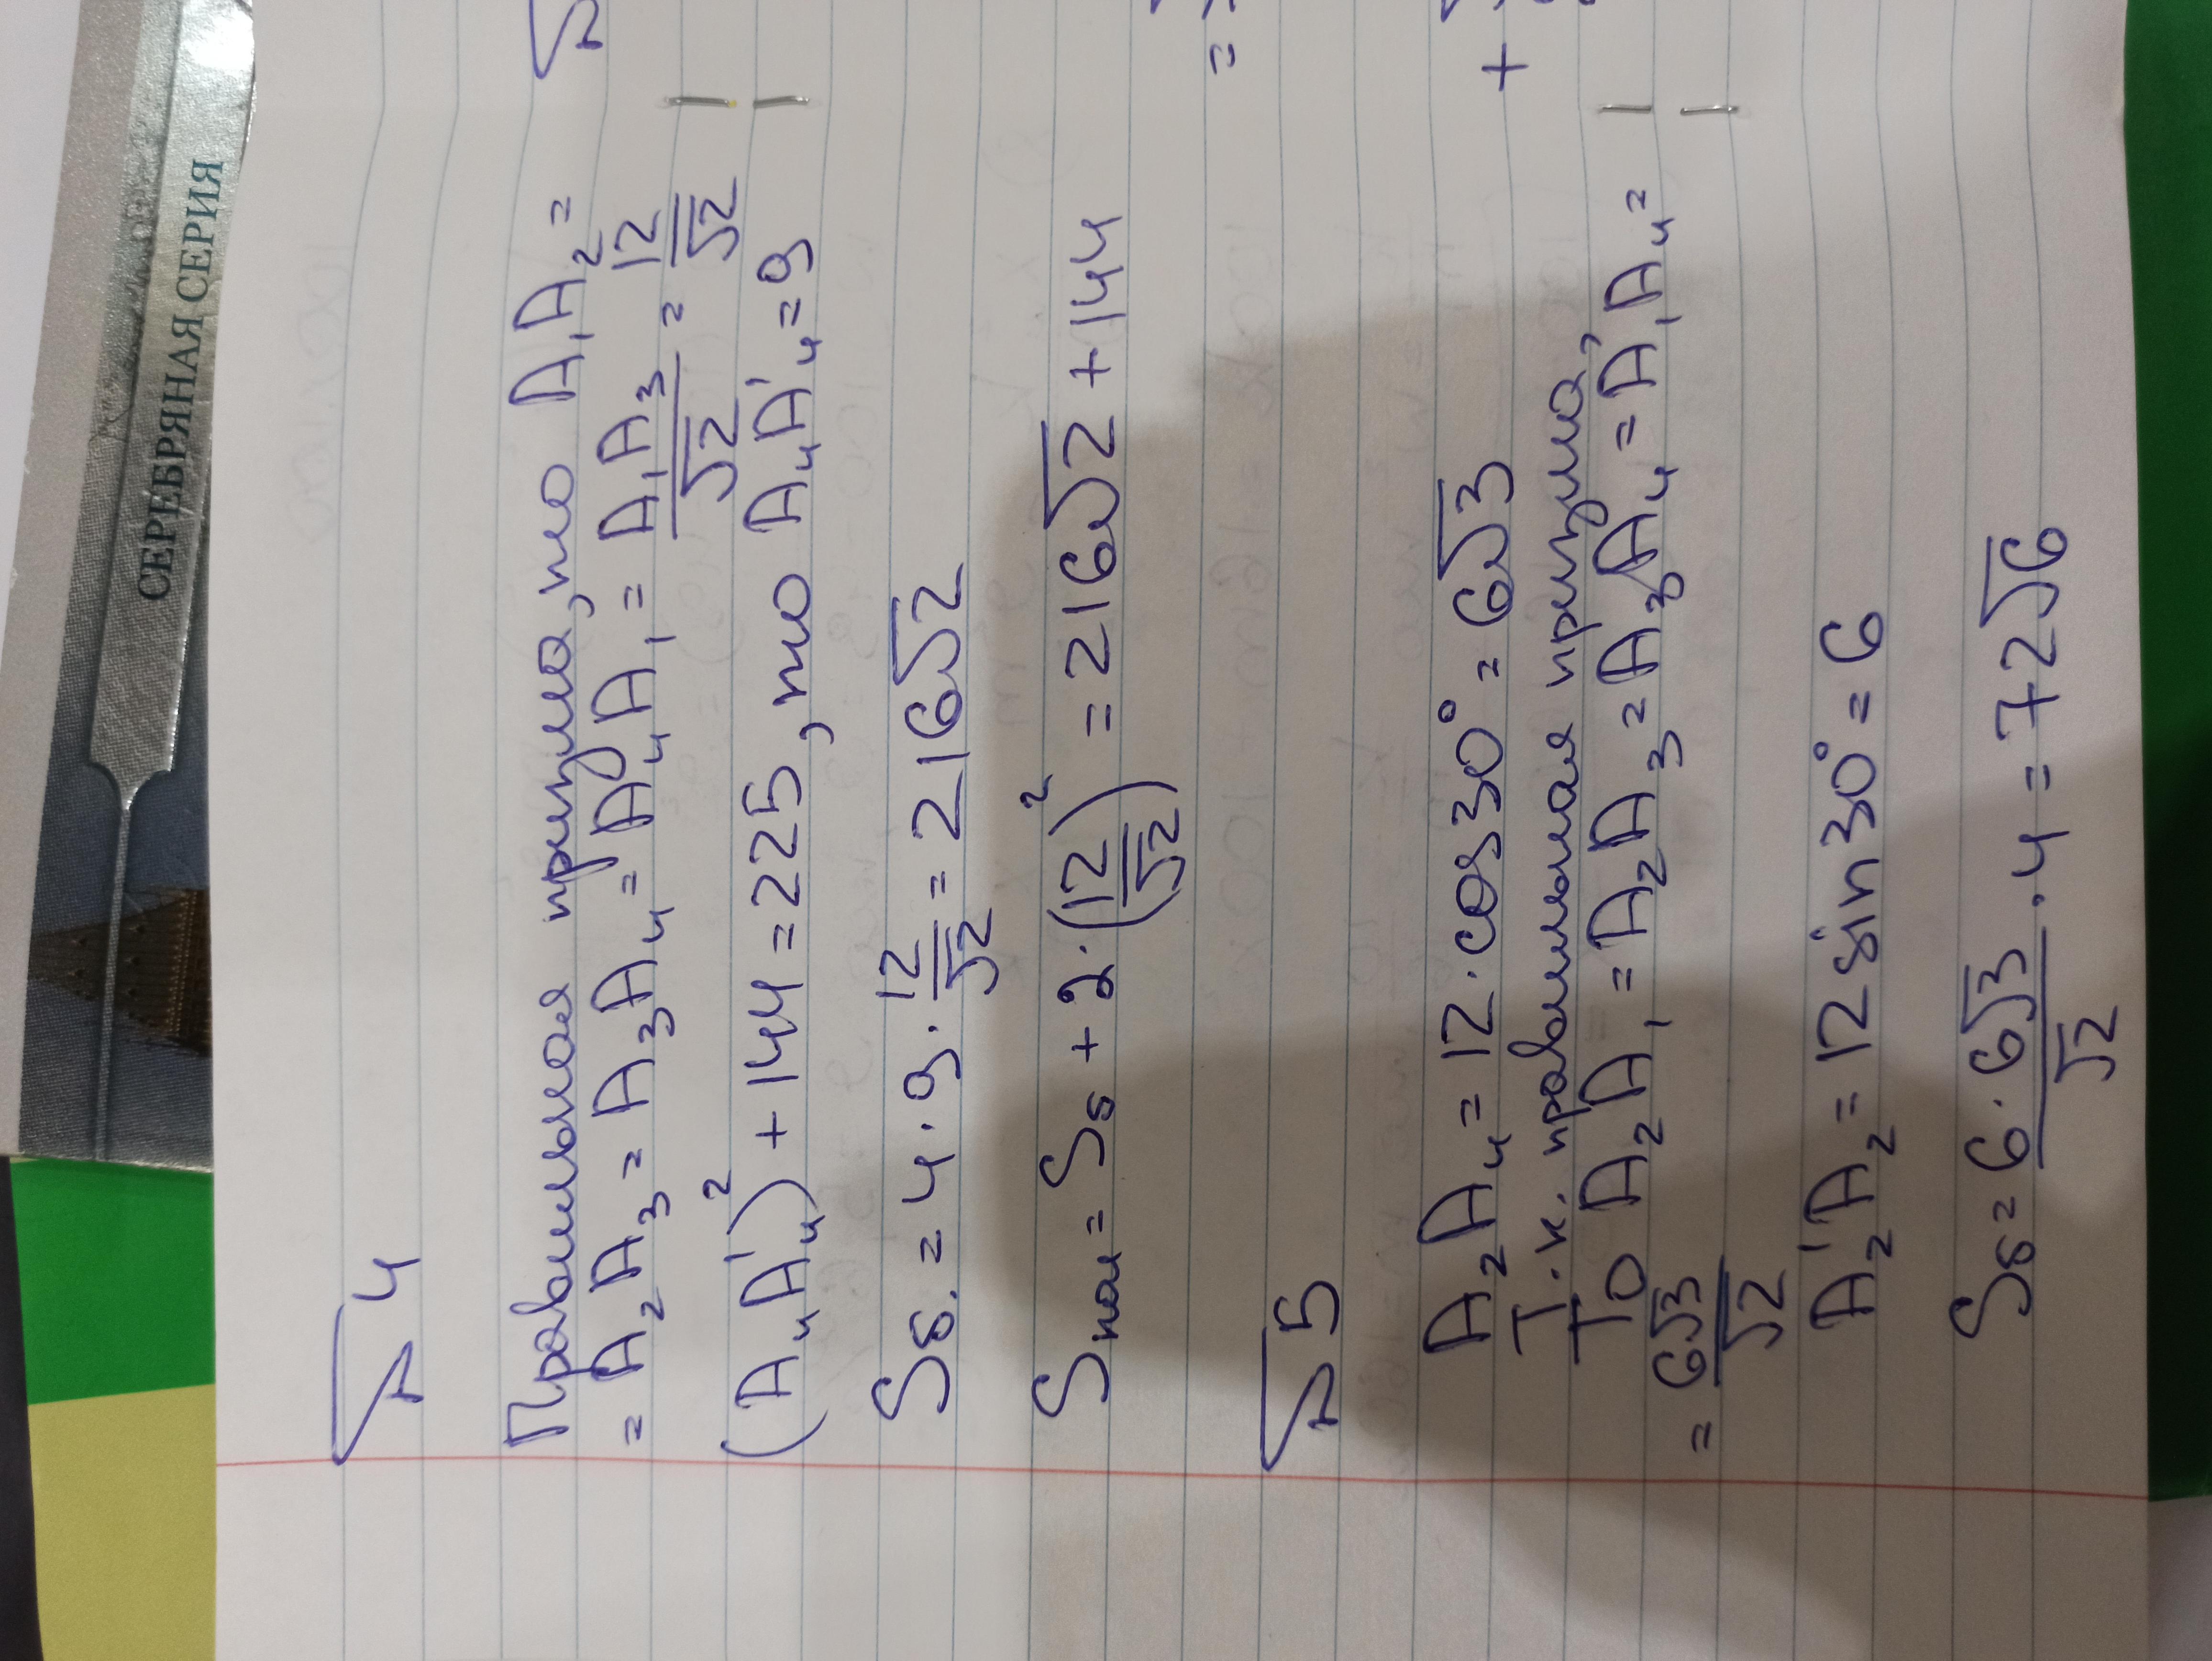 СЕРЕБРЯНАЯ СЕРИЯ
√4
Правильная призма, то A₁A₂ =
= A₂A₃ = A₃A₄ = A₄A₁ = A₁A₃/√2 = 12/√2
(A₄A'₄)² + 144 = 225, то A₄A'₄ = 9
Sб. = 4 · 9 · 12/√2 = 216√2
Sпол = Sб + 2 · (12/√2)² = 216√2 + 144
√5
A₂A₄ = 12 · cos30° = 6√3
Т.к. правильная призма,
То A₂A₁ = A₂A₃ = A₃A₄ = A₁A₄ =
= 6√3/√2
A₂'A₂ = 12 sin30° = 6
Sб = 6 · 6√3/√2 · 4 = 72√6
=
+